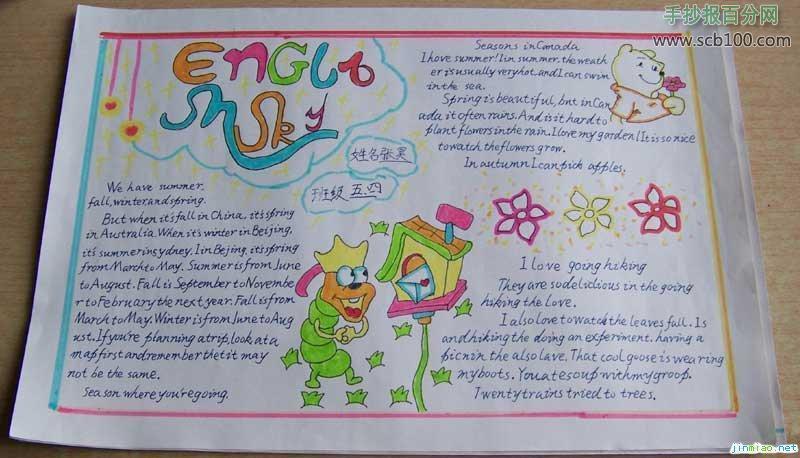 手抄报百分网
www.scb100.com
EnGLI
SH SKy
姓名张昊
班级五四
We have summer.
fall, winter, and spring.
But when it's fall in China, it's spring
in Australia. When it's winter in Beijing,
it's summer in sydney. Iin Bejing, it's spring
from March to May. Summer is from June
to August. Fall is September to Novembe
r to February the next year. Fall is from
March to May. Winter is from June to Aug
ust. If you're planning a trip, look at a
map first and remember thet it may
not be the same.
Season where you're going.
Seasons in Canada
I hove summer! Iin summer. the weath
er is usually very hot. and I can swim
in the sea.
Spring is beautiful, bnt in Can
ada it often rains. And is it hard to
plant flowers in the rain. I love my garden! It is so nice
to watch the flowers grow.
In autumn I can pick apples.
I love going hiking
They are so delislicious in the going
hiking the love.
I also love to watch the leaves fall. Is
and hiking the doing an experiment. having a
picnin the also lave. That cool goose is wearing
my boots. You ate soup with my groop.
Twenty trains tried to trees.
jinmiao.net